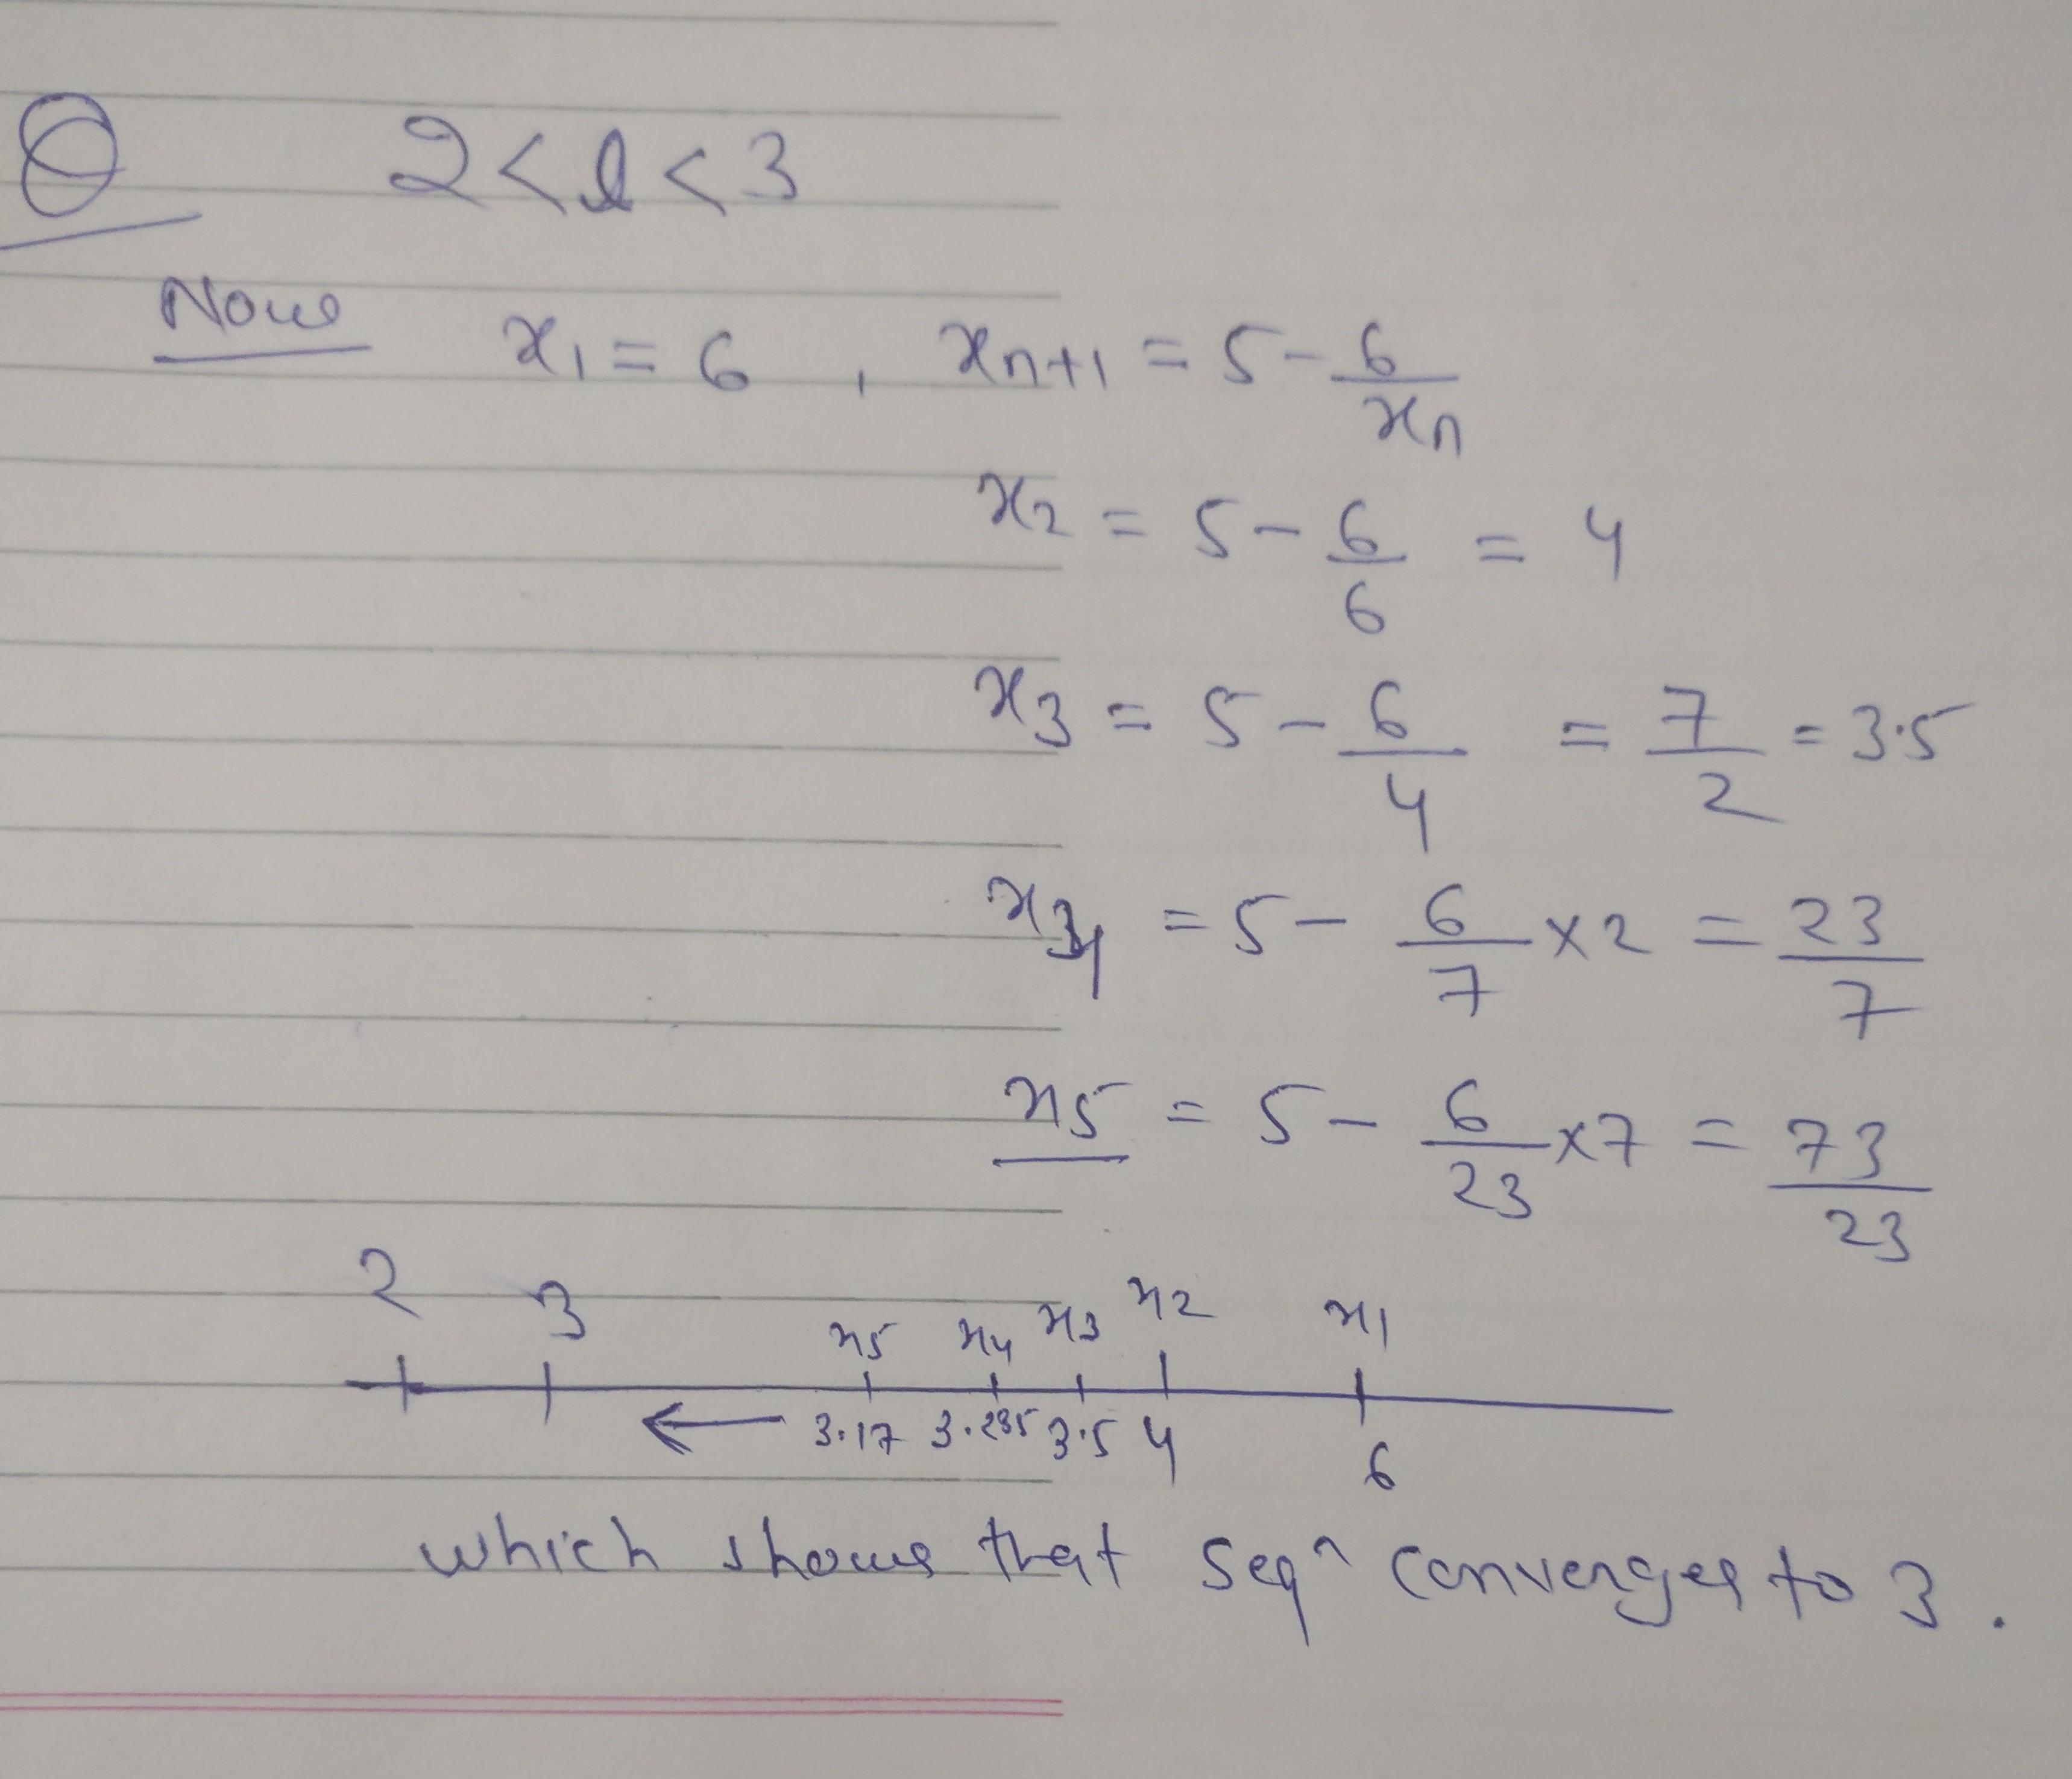 Q 2 < l < 3
Now x₁ = 6 , xₙ₊₁ = 5 - 6/xₙ
x₂ = 5 - 6/6 = 4
x₃ = 5 - 6/4 = 7/2 = 3.5
x₄ = 5 - 6/7 × 2 = 23/7
x₅ = 5 - 6/23 × 7 = 73/23
2 3 x₅ x₄ x₃ x₂ x₁
← 3.17 3.285 3.5 4 6
which shows that seqⁿ converges to 3.